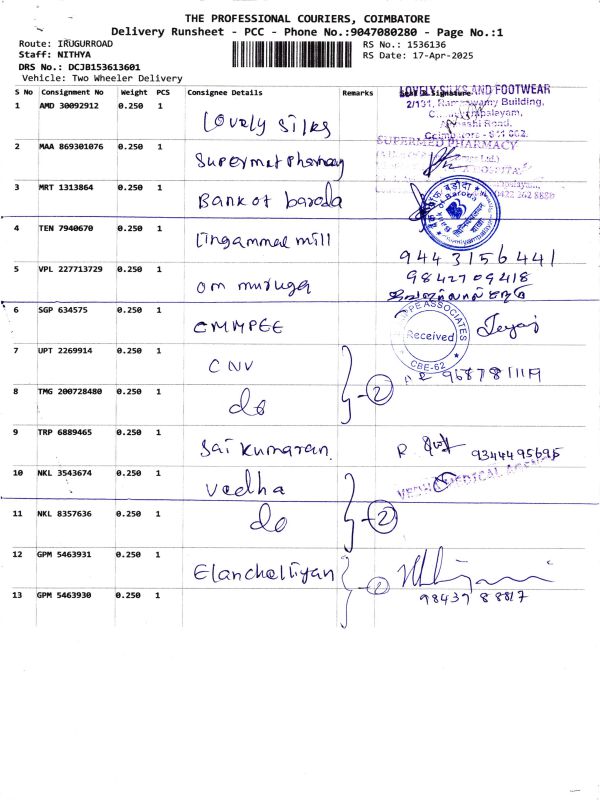 THE PROFESSIONAL COURIERS, COIMBATORE
Delivery Runsheet - PCC - Phone No.:9047080280 - Page No.:1
Route: IRUGURROAD
RS No.: 1536136
Staff: NITHYA
RS Date: 17-Apr-2025
DRS No.: DCJB153613601
Vehicle: Two Wheeler Delivery
S No Consignment No Weight PCS Consignee Details Remarks
LOVELY SILKS AND FOOTWEAR
1 AMD 30092912 0.250 1 Lovely silks
2/131, Ramaswamy Building,
Coimbatore - 641 062.
2 MAA 869301076 0.250 1 Supermet Pharmacy
SUPERMED PHARMACY
3 MRT 1313864 0.250 1 Bank of baroda
4 TEN 7940670 0.250 1 lingammal mill
9443156441
5 VPL 227713729 0.250 1 om muruga
9842709418
6 SGP 634575 0.250 1 CMMPEE
ASSOCIATES
Received
CBE-62
7 UPT 2269914 0.250 1 CNV
2
8 TMG 200728480 0.250 1 do
9 TRP 6889465 0.250 1 Sai kumaran.
R 9344495695
10 NKL 3543674 0.250 1 Vedha
MEDICAL
11 NKL 8357636 0.250 1 do
2
12 GPM 5463931 0.250 1 Elancheliyan
2
13 GPM 5463930 0.250 1
98437 88817